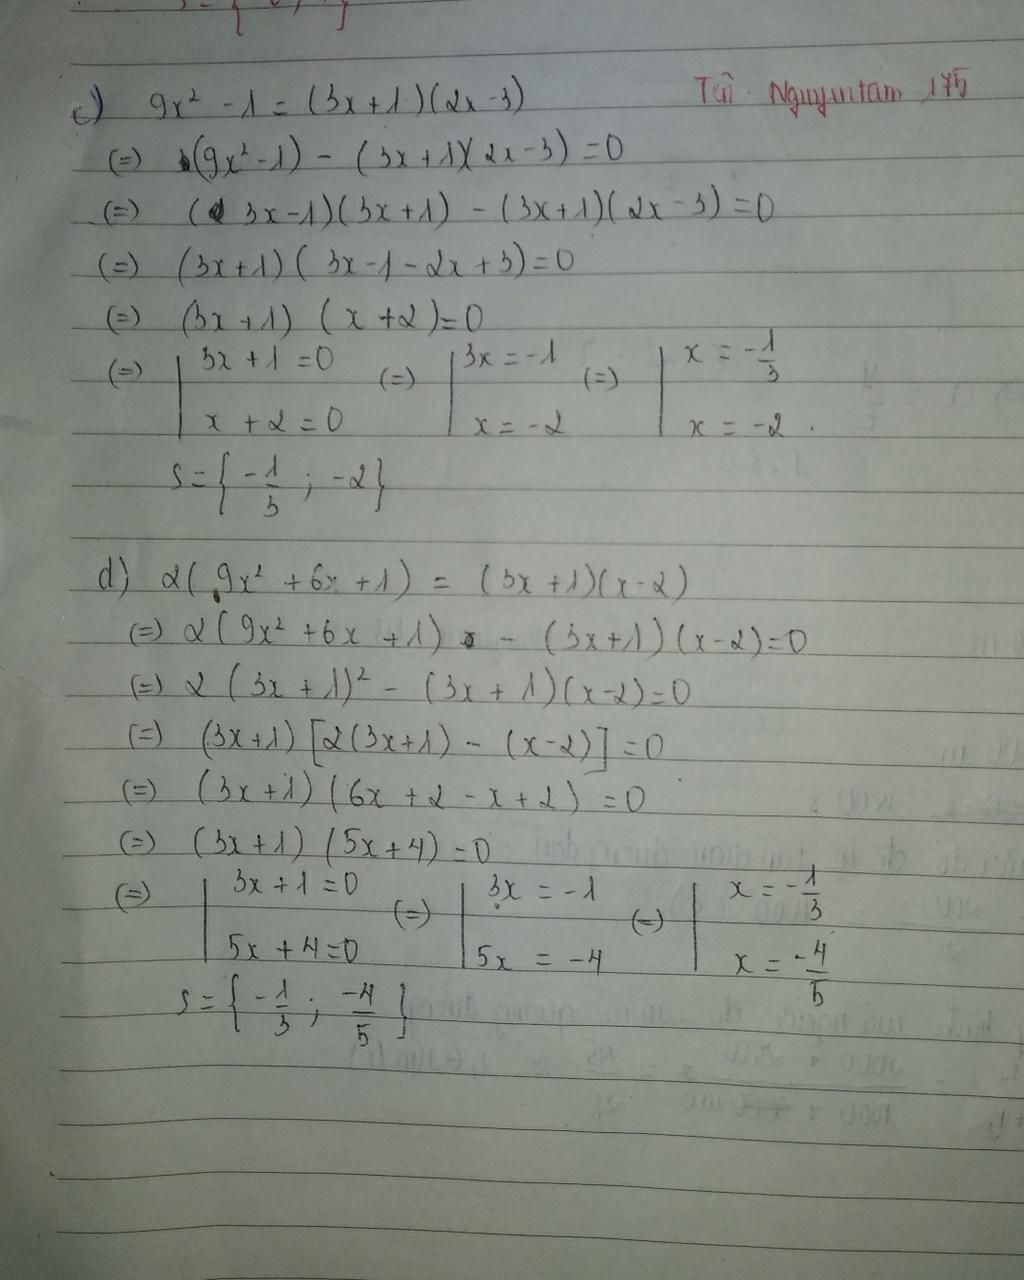 c) 9x² - 1 = (3x+1)(2x-3)
Tên Nguyuntam 175
(=) (9x²-1) - (3x+1)(2x-3) = 0
(=) (3x-1)(3x+1) - (3x+1)(2x-3) = 0
(=) (3x+1)(3x-1-2x+3) = 0
(=) (3x+1) (x+2) = 0
(=) | 3x+1 = 0 (=) | 3x = -1 (=) | x = -1/3
| x + 2 = 0 | x = -2 | x = -2.
S = { -1/3 ; -2 }
d) 2(9x² + 6x + 1) = (3x+1)(x-2)
(=) 2(9x² + 6x + 1) - (3x+1)(x-2) = 0
(=) 2(3x+1)² - (3x+1)(x-2) = 0
(=) (3x+1)[2(3x+1) - (x-2)] = 0
(=) (3x+1)(6x+2-x+2) = 0
(=) (3x+1)(5x+4) = 0
(=) | 3x+1 = 0 (=) | 3x = -1 (=) | x = -1/3
| 5x+4 = 0 | 5x = -4 | x = -4/5
S = { -1/3 ; -4/5 }